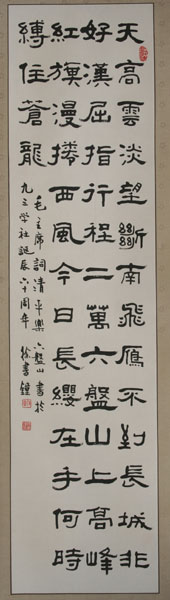 天高雲淡望斷南飛鴈不到長城非
好漢屈指行程二萬六盤山上高峰
紅旗漫捲西風今日長纓在手何時
縛住蒼龍
毛主席詞清平樂六盤山書於
九三学社誕辰六十周年 徐書鐘